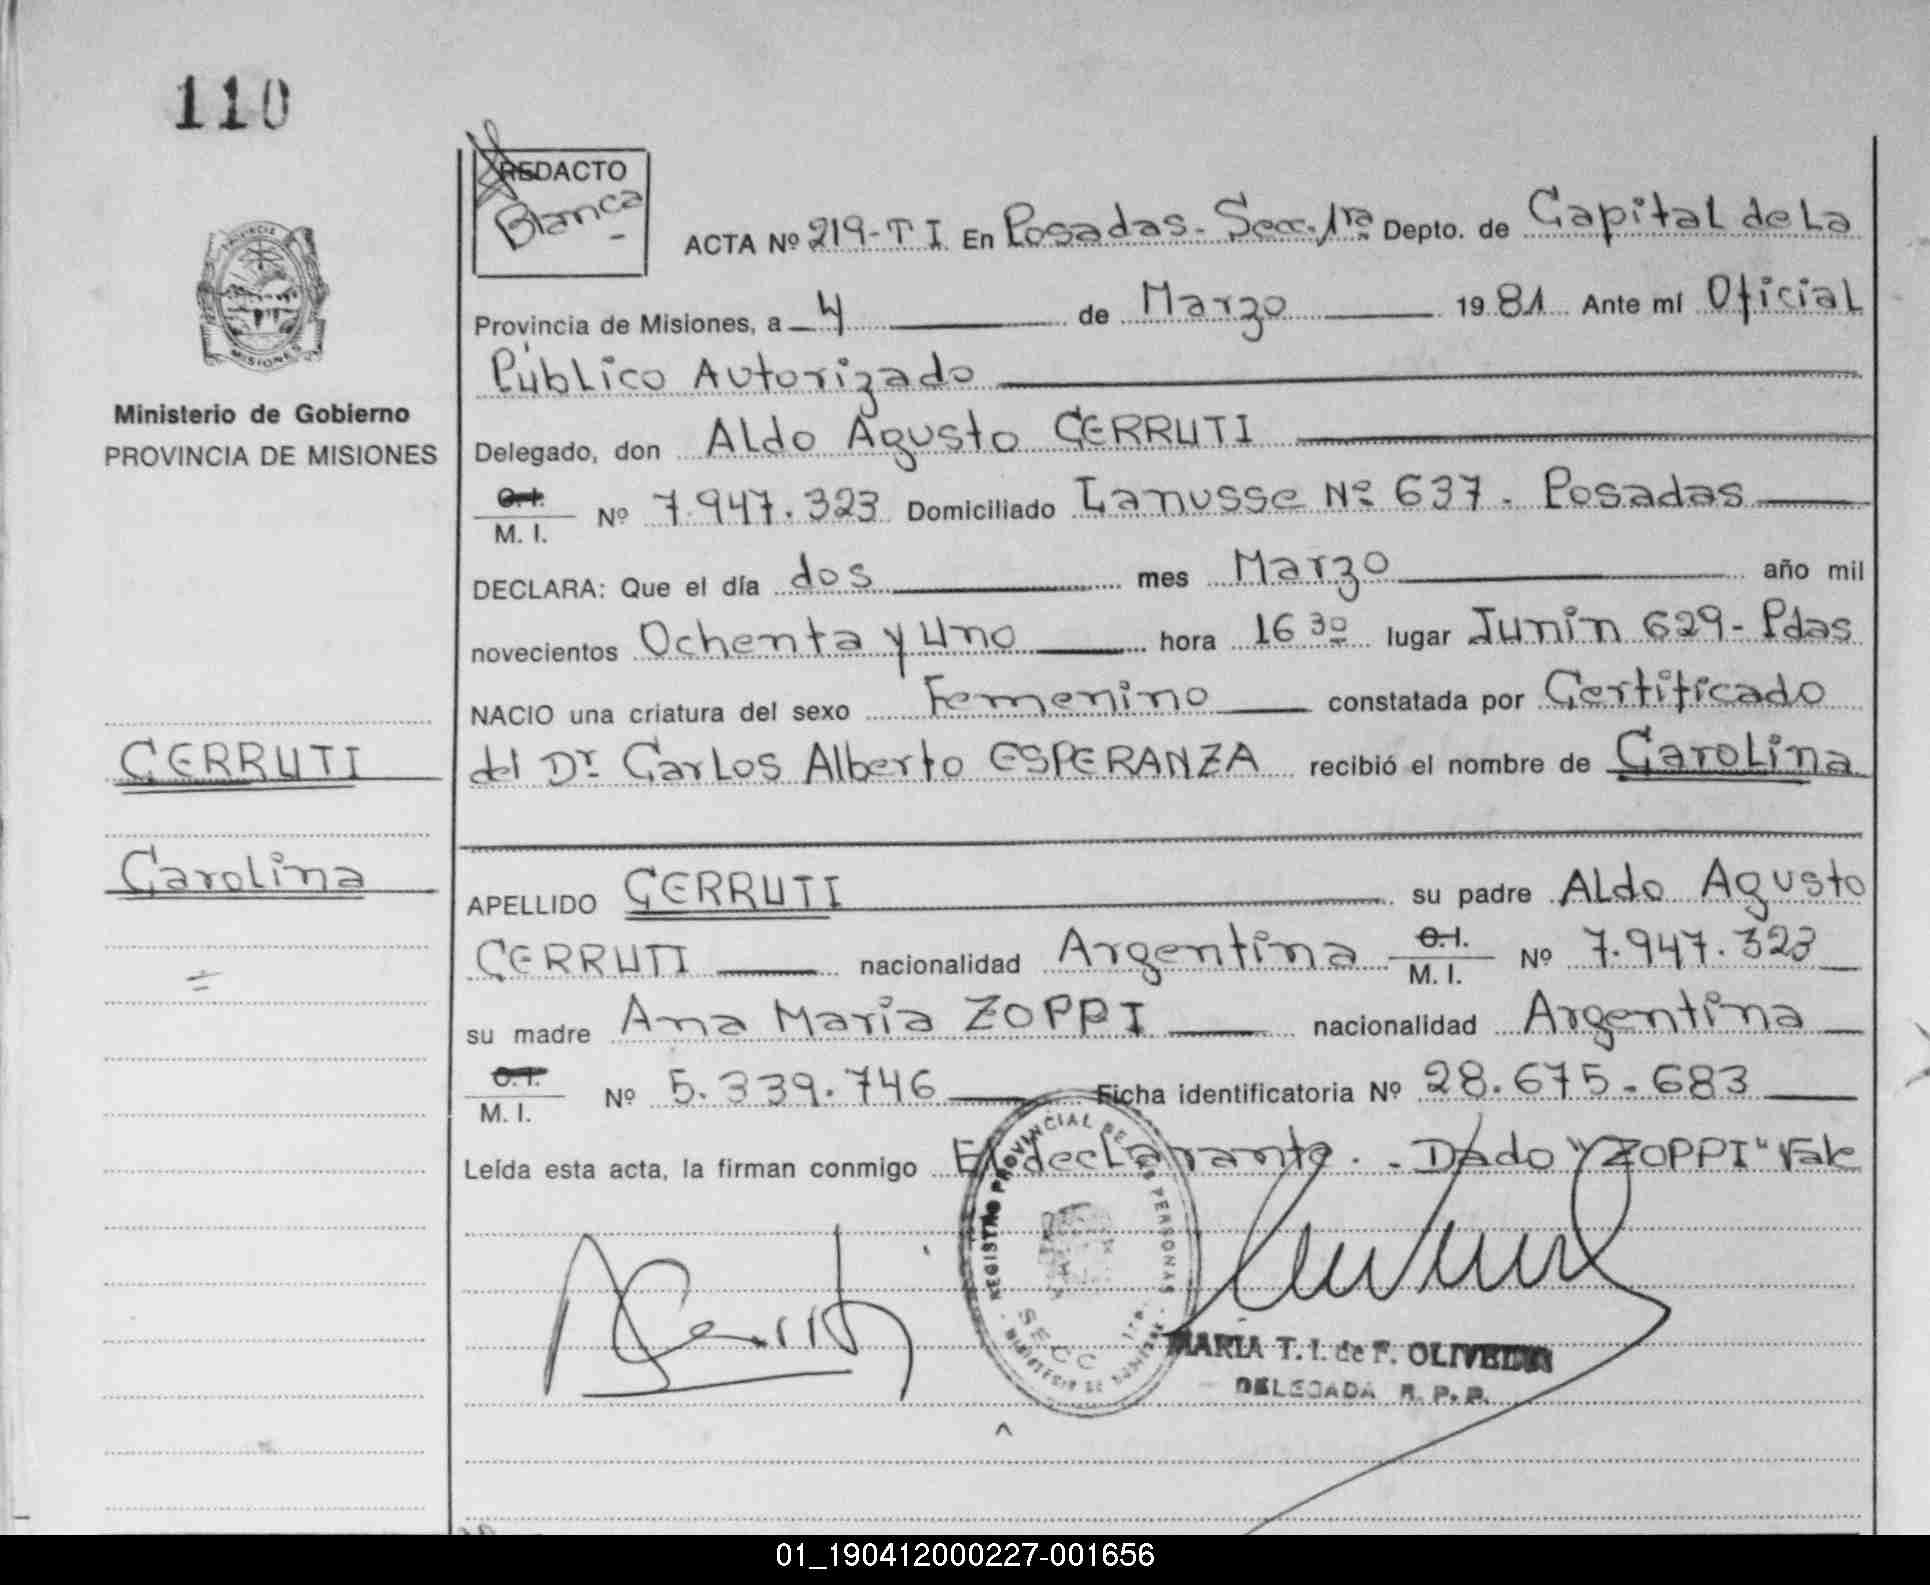 110
REDACTO
Blanca
ACTA Nº 219-T I En Posadas - Secc. 1ra Depto. de Capital de La
Provincia de Misiones, a 4 de Marzo 1981 Ante mí Oficial
Público Autorizado
Ministerio de Gobierno
PROVINCIA DE MISIONES
Delegado, don Aldo Agusto CERRUTI
C.I.
M. I. Nº 7.947.323 Domiciliado Lanusse Nº 637. Posadas
DECLARA: Que el día dos mes Marzo año mil
novecientos Ochenta y Uno hora 16 30 lugar Junin 629 - Pdas
NACIO una criatura del sexo Femenino constatada por Certificado
CERRUTI
del Dr Carlos Alberto ESPERANZA recibió el nombre de Carolina
Carolina
APELLIDO CERRUTI su padre Aldo Agusto
CERRUTI nacionalidad Argentina C.I.
M. I. Nº 7.947.323
su madre Ana Maria ZOPPI nacionalidad Argentina
C.I.
M. I. Nº 5.339.746 Ficha identificatoria Nº 28.675.683
Leída esta acta, la firman conmigo El declarante. - Dado "ZOPPI" Vale
REGISTRO PROVINCIAL DE LAS PERSONAS
SECC. 1ra
MINISTERIO DE GOBIERNO
MARIA T. I. de F. OLIVEIRA
DELEGADA R. P. P.
01_190412000227-001656